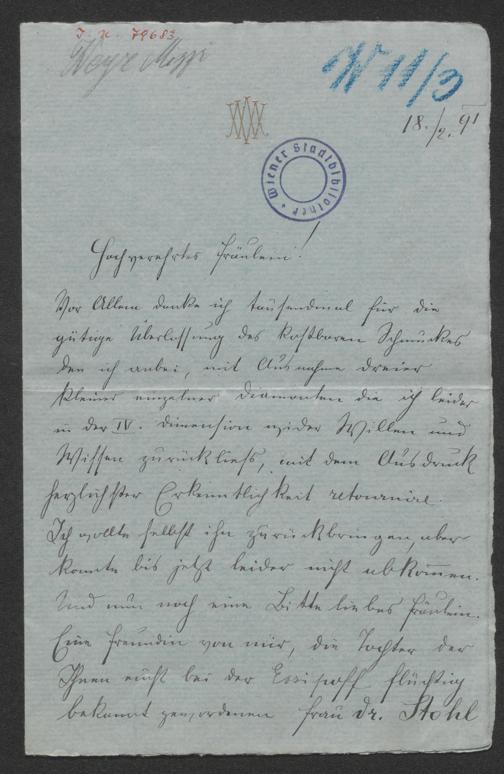 I. N. 79683
Weyr Mizzi
W 11/3
18./2. 91
Wiener Stadtbibliothek
Hochverehrtes Fräulein!
Vor Allem danke ich tausendmal für die
gütige Überlassung des kostbaren Schmuckes
den ich anbei, mit Ausnahme dreier
kleiner einzelner Diamanten die ich leider
in der IV. Dimension wider Willen und
Wissen zurückließ, mit dem Ausdruck
herzlichster Erkenntlichkeit retournire.
Ich wollte selbst ihn zurückbringen, aber
konnte bis jetzt leider nicht abkommen.
Und nun noch eine Bitte liebes Fräulein.
Eine Freundin von mir, die Tochter der
Ihnen einst bei der Essipoff flüchtig
bekannt gewordenen Frau Dr. Stohl